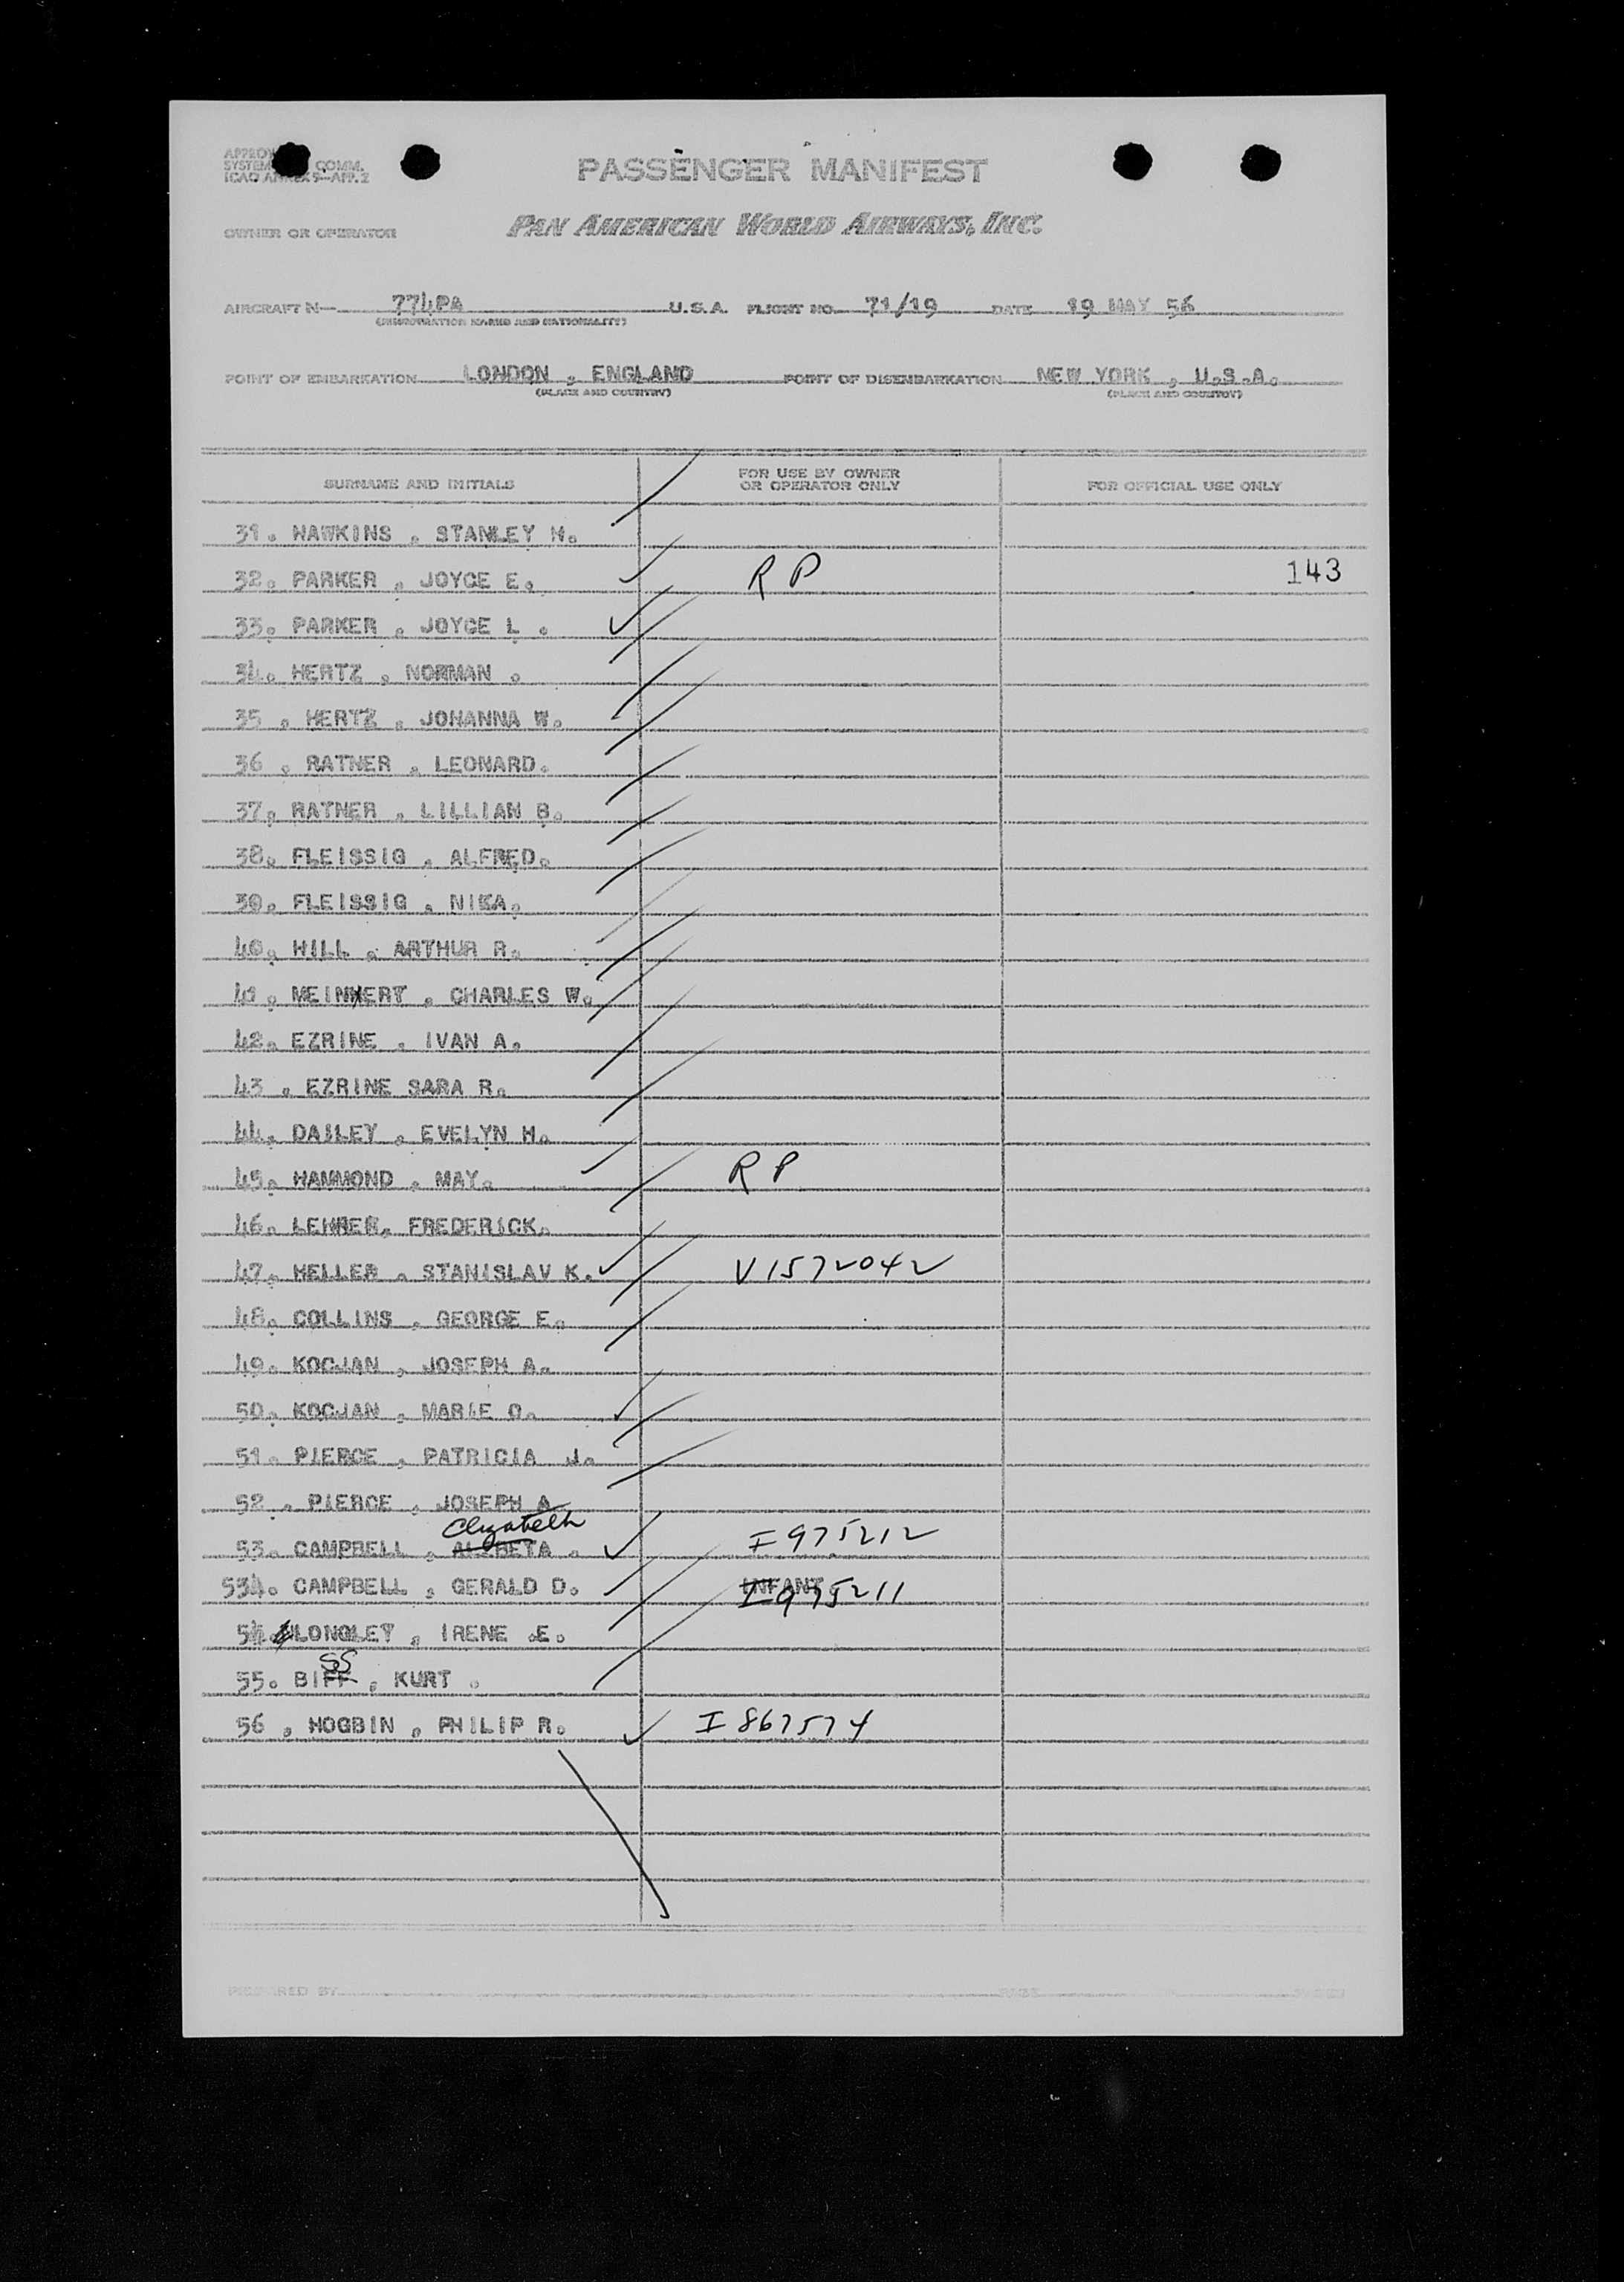 PASSENGER MANIFEST
SYSTEM COMM.
ICAO ANNEX 9—APP. 2
OWNER OR OPERATOR PAN AMERICAN WORLD AIRWAYS, INC.
AIRCRAFT N— 774PA U.S.A. FLIGHT NO. 71/19 DATE 19 MAY 56
(REGISTRATION MARKS AND NATIONALITY)
POINT OF EMBARKATION LONDON , ENGLAND POINT OF DISEMBARKATION NEW YORK , U.S.A.
(PLACE AND COUNTRY) (PLACE AND COUNTRY)
SURNAME AND INITIALS FOR USE BY OWNER OR OPERATOR ONLY FOR OFFICIAL USE ONLY
31. HAWKINS , STANLEY H.
32. PARKER , JOYCE E. R P 143
33. PARKER , JOYCE L .
34. HERTZ , NORMAN .
35 . HERTZ , JOHANNA W.
36 . RATNER , LEONARD.
37. RATNER , LILLIAN B.
38. FLEISSIG , ALFRED.
39. FLEISSIG , NIKA.
40. HILL , ARTHUR R.
41 . MEINHERT , CHARLES W.
42. EZRINE , IVAN A.
43 . EZRINE SARA R.
44. DAILEY , EVELYN H.
45. HAMMOND , MAY. R P
46. LEHRER, FREDERICK.
47. HELLER , STANISLAV K. V1572042
48. COLLINS , GEORGE E.
49. KOCJAN , JOSEPH A.
50. KOCJAN , MARIE O.
51. PIERCE , PATRICIA J.
52 . PIERCE , JOSEPH A
Elizabeth
53. CAMPBELL , ALZBETA . I 975212
534. CAMPBELL , GERALD D. INFANT I 975211
54. LONGLEY , IRENE E.
SS
55. BIFF , KURT .
56 . HOGBIN , PHILIP R. I 867574
PREPARED BY PAGE